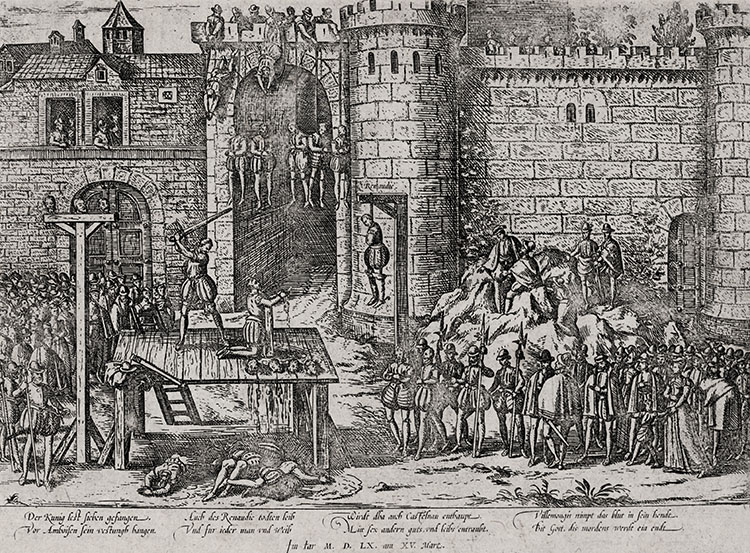 Renaudie
Der Kunig lest sieben gefangen
Vor Ambosen sein vestungh hangen.
Auch des Renaudie todten leib
Und für ieder man und weib
Wirdt dha auch Castelnau enthaupt
M. in sex andern guts, und leibs entraubt.
Villemougis nimpt das blut in sein hende
Bit Gott, die mordens werde ein ende
Im Iar M. D. LX. am XV. Martz.